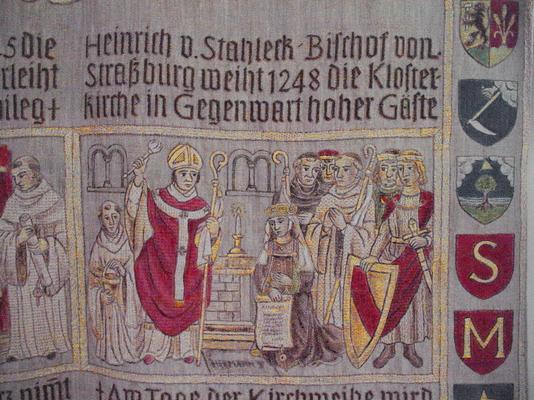 5 die
rleiht
ileg+
Heinrich v. Stahleck·Bischof von
Straßburg weiht 1248 die Kloster-
kirche in Gegenwart hoher Gäste
S
M
+Am Tage der Kirchweihe wird